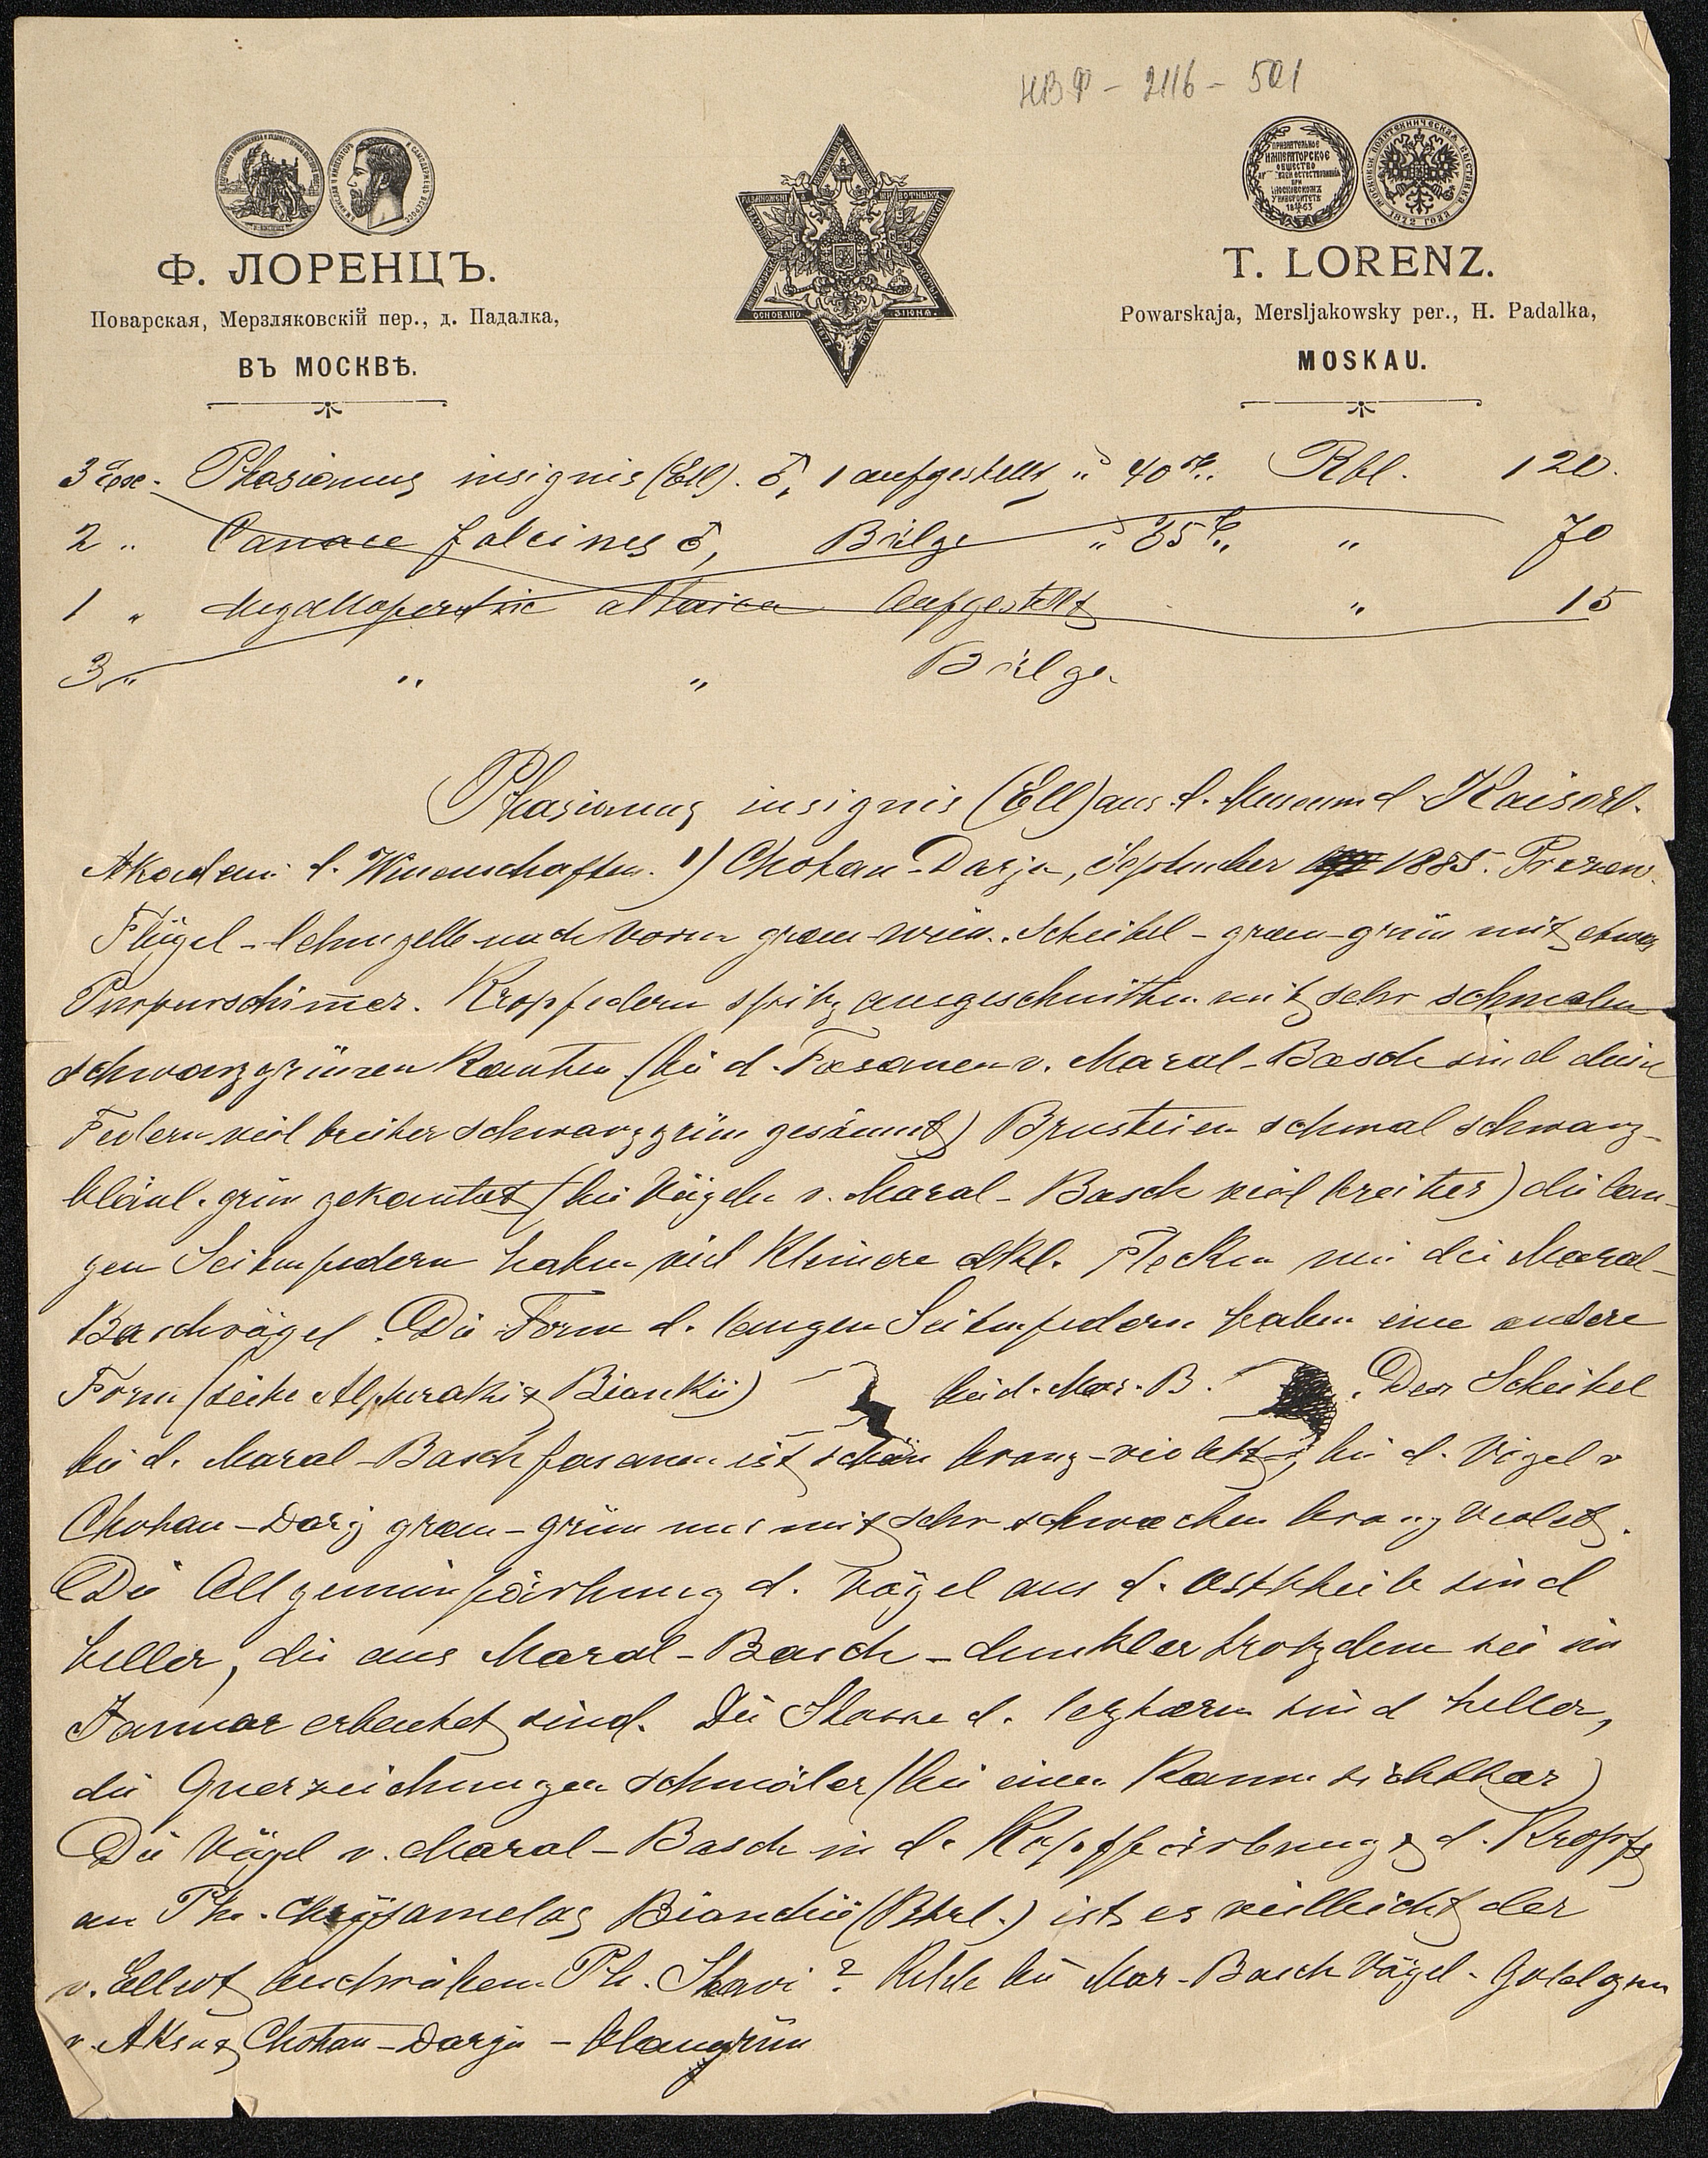 НВФ - 2116 - 501
Ф. ЛОРЕНЦЪ.
Поварская, Мерзляковскій пер., д. Падалка,
ВЪ МОСКВѢ.
ПРИЗНАТЕЛЬНОЕ
ИМПЕРАТОРСКОЕ
ОБЩЕСТВО
ПРИ
МОСКОВСКОМЪ
УНИВЕРСИТЕТѢ
1863
1872 ГОДА
ОСНОВАНО
T. LORENZ.
Powarskaja, Mersljakowsky per., H. Padalka,
MOSKAU.
3 Exe. Phasianus insignis (Ell). ♂, 1 aufgestellt, à 40 Rbl. 120.
2 " Canace falcipes ♂, Bälge à 35 " 70
1 " Megalloperdix altaica Aufgestellt " 15
3 " " " Bälge.
Phasianus insignis (Ell) aus d. Museum d. Kaiserl.
Akademi d. Wissenschaften. 1) Chotan-Darja, September 1885.
Flügel - lehmgelb nach vorn grau-weis. Scheitel - grau-grün mit etwas
Purpurschimer. Kropfedern spitz ausgeschnitten mit sehr schmalen
schwarzgrünen Kanten (bei d. Fasanen v. Maral-Basch sind diese
Federn viel breiter schwarzgrün gesäumt) Brustseiten schmal schwarz-
bläul. grün gekantet (bei Vögeln v. Maral-Basch viel breiter) die lan-
gen Seitenfedern haben viel kleinere dkl. Flecken wie die Maral-
Baschvögel. Die Form d. langen Seitenfedern haben eine andere
Form (siehe Alpheraki & Biankii) bei d. Mar. B. . Der Scheitel
bei d. Maral-Basch fasanen ist schön bronz-violett, bei d. Vögel v
Chotan-Darj grau-grün nur mit sehr schwachen bronz violet.
Die Allgemeinfärbung d. Vögel aus d. Osttheile sind
heller, die aus Maral-Basch - dunkler trotzdem sie im
Januar erbeutet sind. Die Stosse d. letztern sind heller,
die Querzeichnungen schmäler (bei einen kaum sichtbar)
Die Vögel v. Maral-Basch in d. Kopffärbung & d. Kropfs
an Ph. chrysomelas Bianchii (Btrl.) ist es vielleicht der
v. Elliot beschriebene Ph. Shawi? bei Mar-Basch Vögel - Goldgrün
v. Aksu & Chotan-Darja - blaugrün